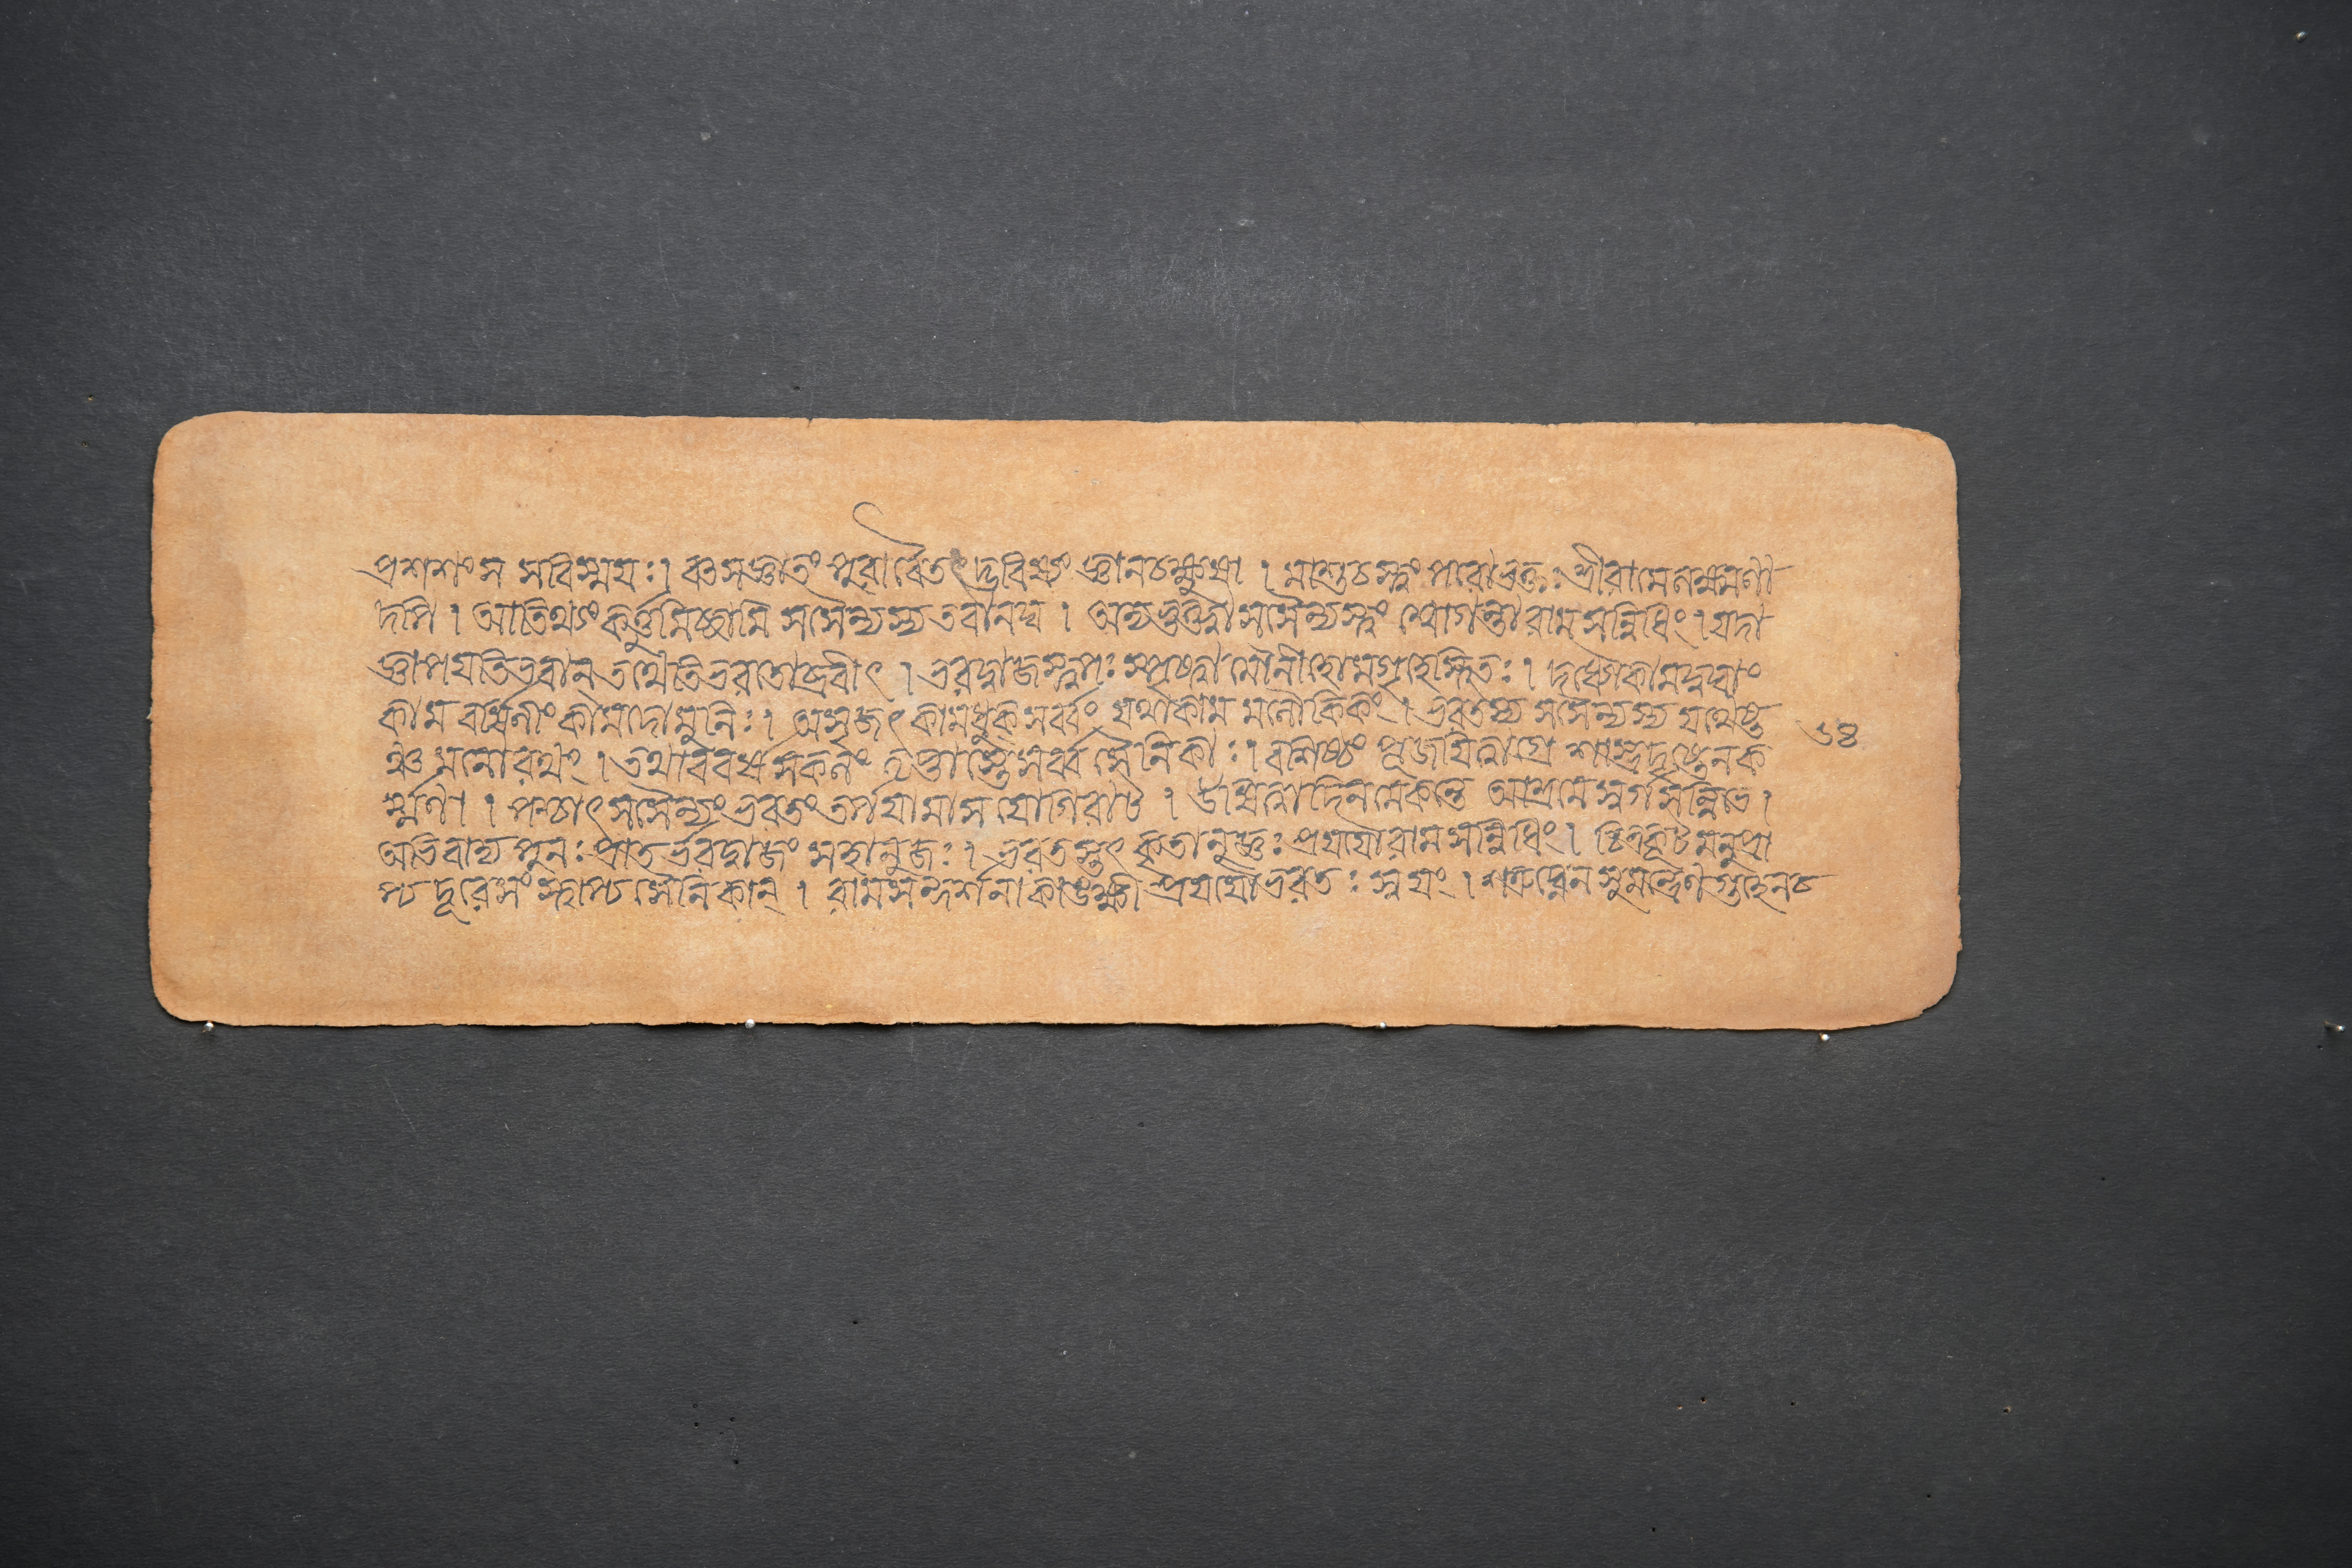 প্রশশংস সবিস্ময়ঃ। বৎসজ্ঞাতং পুরাবৈতৎদ্ভবিষ্যং জ্ঞানচক্ষুষা। মাশুচস্ত্বং পারাভক্তঃ শ্রীরামেলক্ষ্মণা
দপি। আতিথ্যং কর্ত্তুমিচ্ছামি সসৈন্যস্য তবানঘ। অদ্যভুক্ত্বাসসৈন্যস্ত্বং শ্বোগন্তারাম সন্নিধিং। যদা
জ্ঞাপয়তিভবান্ তথেতিভরতোব্রবীৎ। ভরদ্বাজস্ত্বপঃ স্পৃষ্ট্বা মৌনীহোমগৃহেস্থিতঃ। দধ্যৌকামদুঘাং
কাম বর্ষিণীং কামদোমুনিঃ। অসৃজৎ কামধুক্ সর্ব্বং যথাকাম মলৌকিকং। ভরতস্য সসৈন্যস্য যথেষ্ট
ঞ্চ মনোরথং। তথাববর্ষ সকলং তৃপ্তাস্তেসর্ব্ব সৈনিকাঃ। বশিষ্ঠং পূজয়িত্বাগ্রে শাস্ত্রদৃষ্টেনক
র্ম্মণা। পশ্চাৎ সসৈন্যং ভরতং তর্পয়ামাস যোগিরাট। উষিত্বাদিনমেকন্তু আশ্রমে স্বর্গসন্নিভে।
অভিবাদ্য পুনঃ প্রাত র্ভরদ্বাজং সহানুজঃ। ভরতস্তুৎ কৃতানুজ্ঞঃ প্রযযৌ রাম সন্নিধিং। চিত্রকূট মনুপ্রা
প্য দূরেসং স্থাপ্য সৈনিকান্। রামসন্দর্শনাকাঙক্ষী প্রযযৌভরতঃ স্বয়ং। শত্রুঘ্নেন সুমন্ত্রেণ গুহেনচ
৬৪